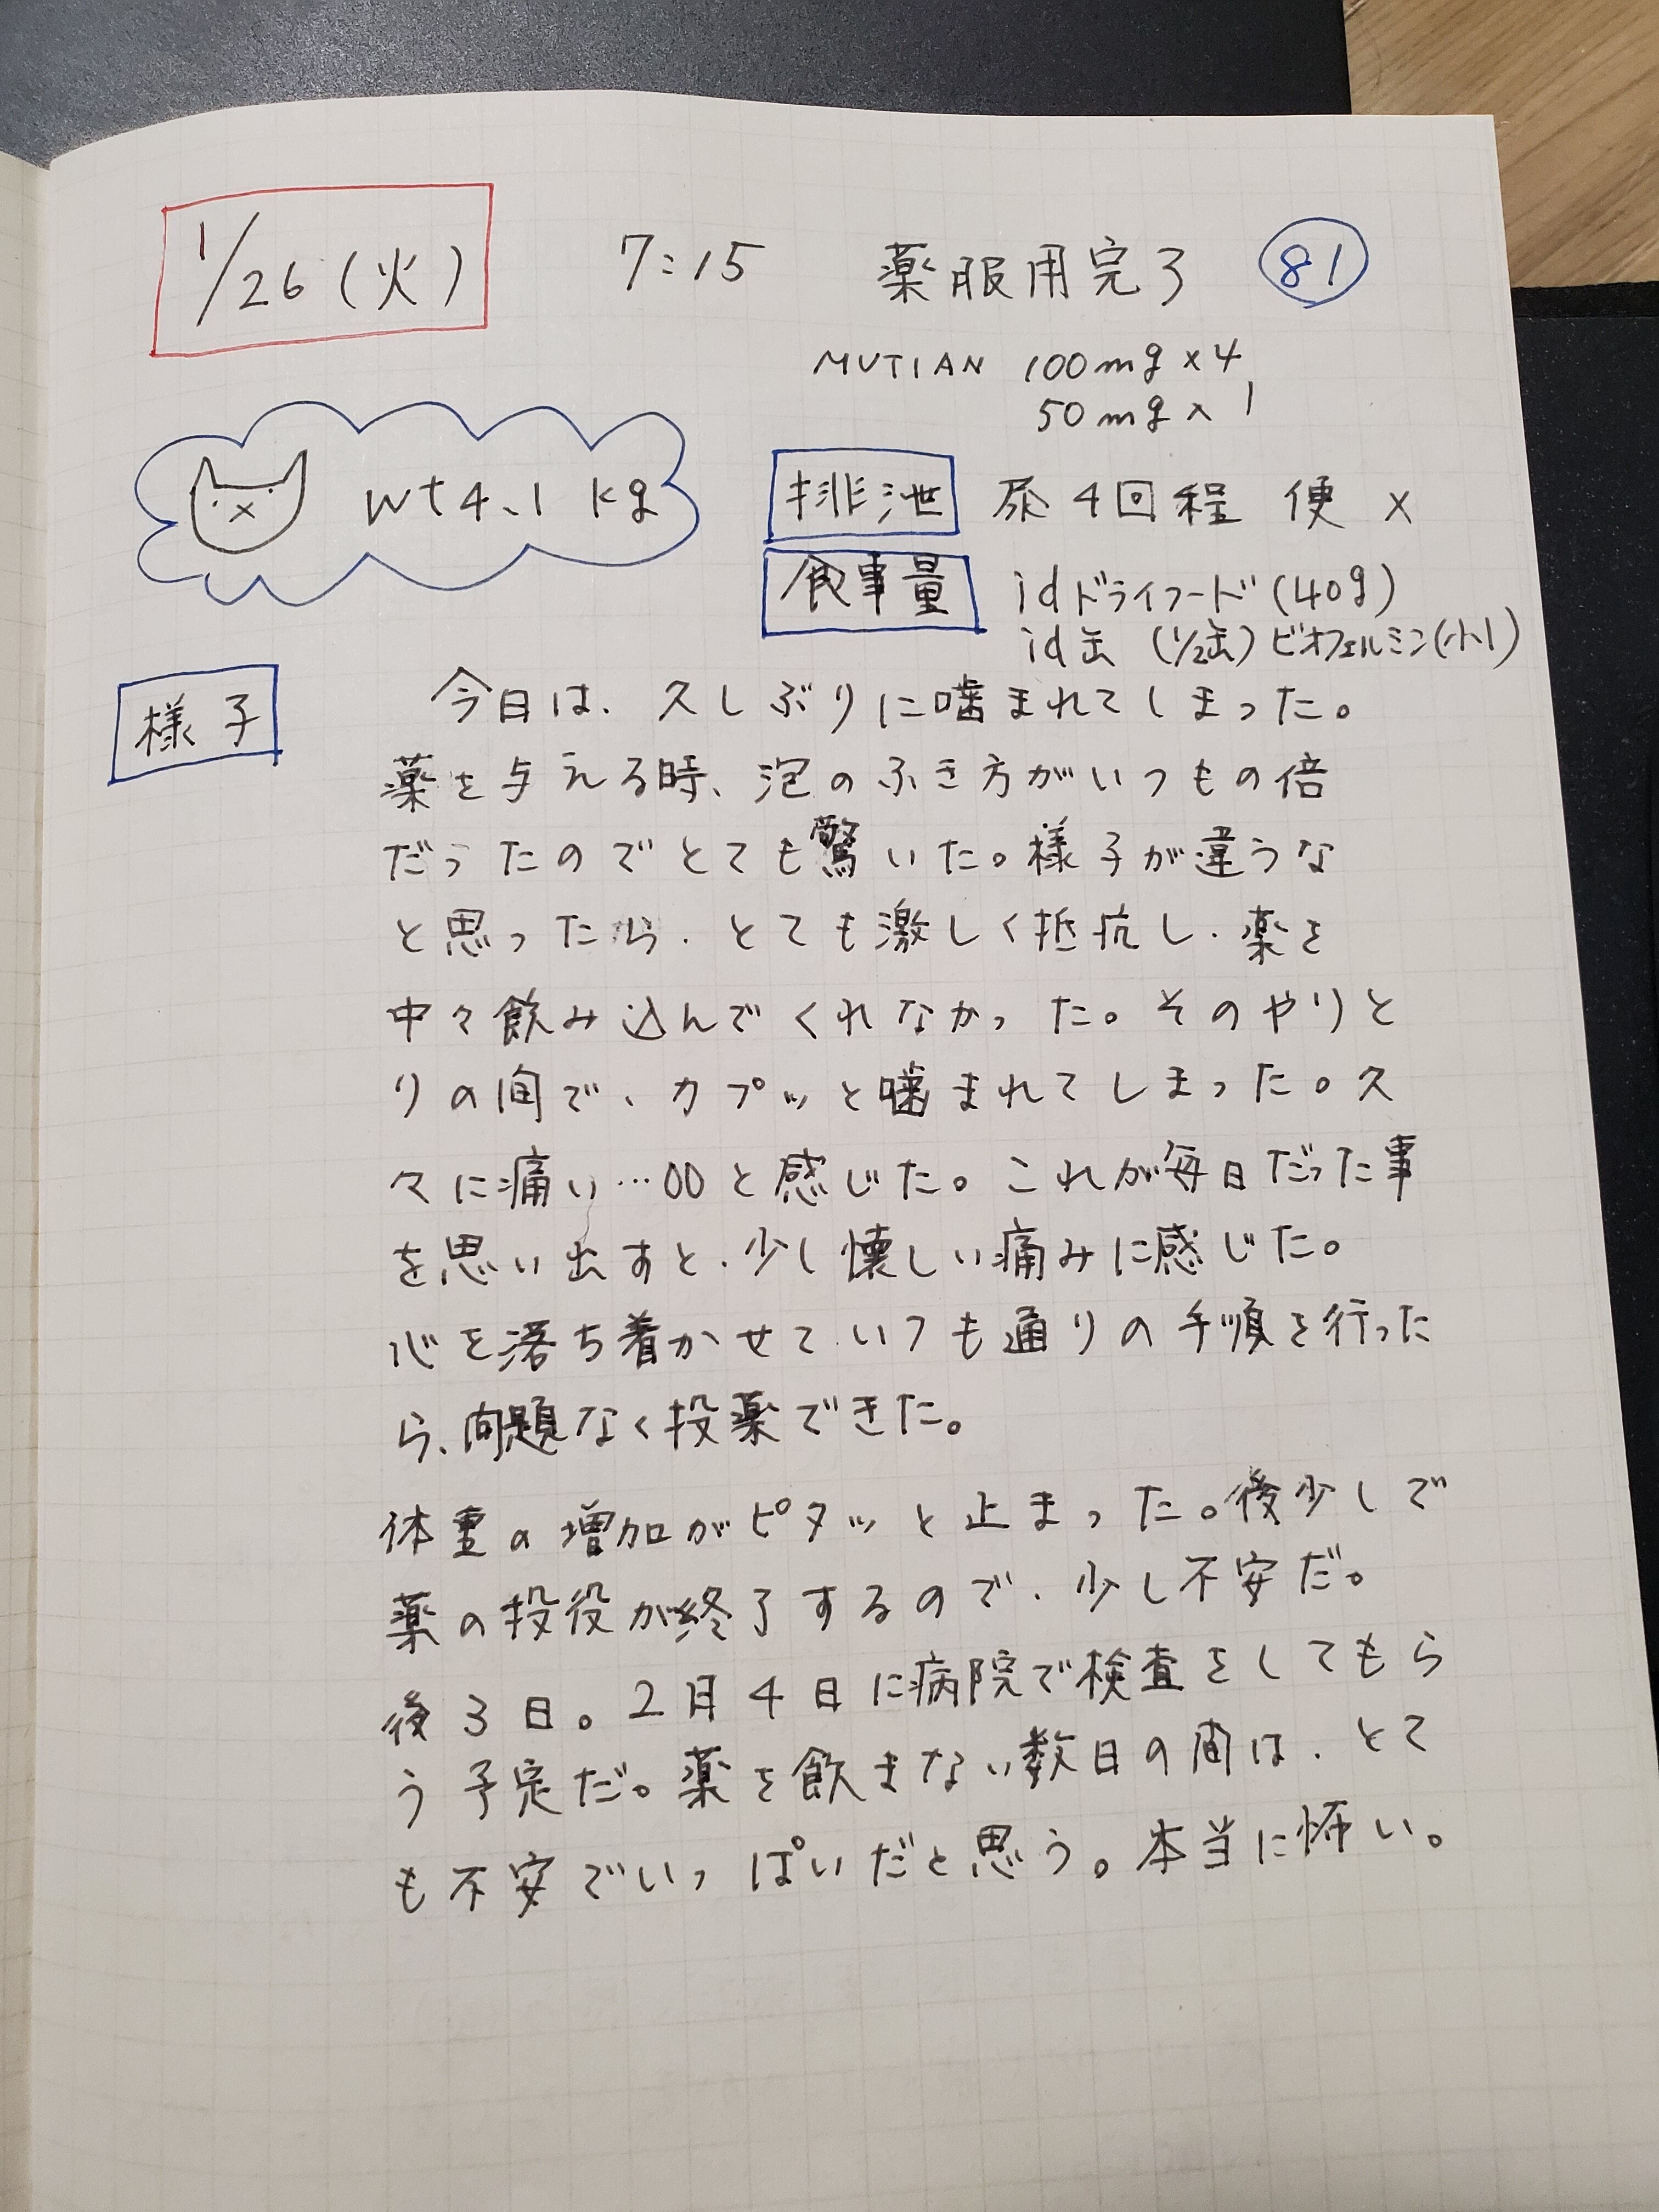 1/26(火) 7:15 薬服用完了 81
MUTIAN 100mg×4
50mg×1
wt4.1kg
排泄 尿4回程 便×
食事量 idドライフード(40g)
id缶(1/2缶)ビオフェルミン(小1)
様子
今日は、久しぶりに噛まれてしまった。
薬を与える時、泡のふき方がいつもの倍
だったのでとても驚いた。様子が違うな
と思ったら、とても激しく抵抗し、薬を
中々飲み込んでくれなかった。そのやりと
りの間で、カプッと噛まれてしまった。久
々に痛い…00と感じた。これが毎日だった事
を思い出すと、少し懐しい痛みに感じた。
心を落ち着かせて、いつも通りの手順を行った
ら、問題なく投薬できた。
体重の増加がピタッと止まった。後少しで
薬の投役が終了するので、少し不安だ。
後3日。2月4日に病院で検査をしてもら
う予定だ。薬を飲まない数日の間は、とて
も不安でいっぱいだと思う。本当に怖い。